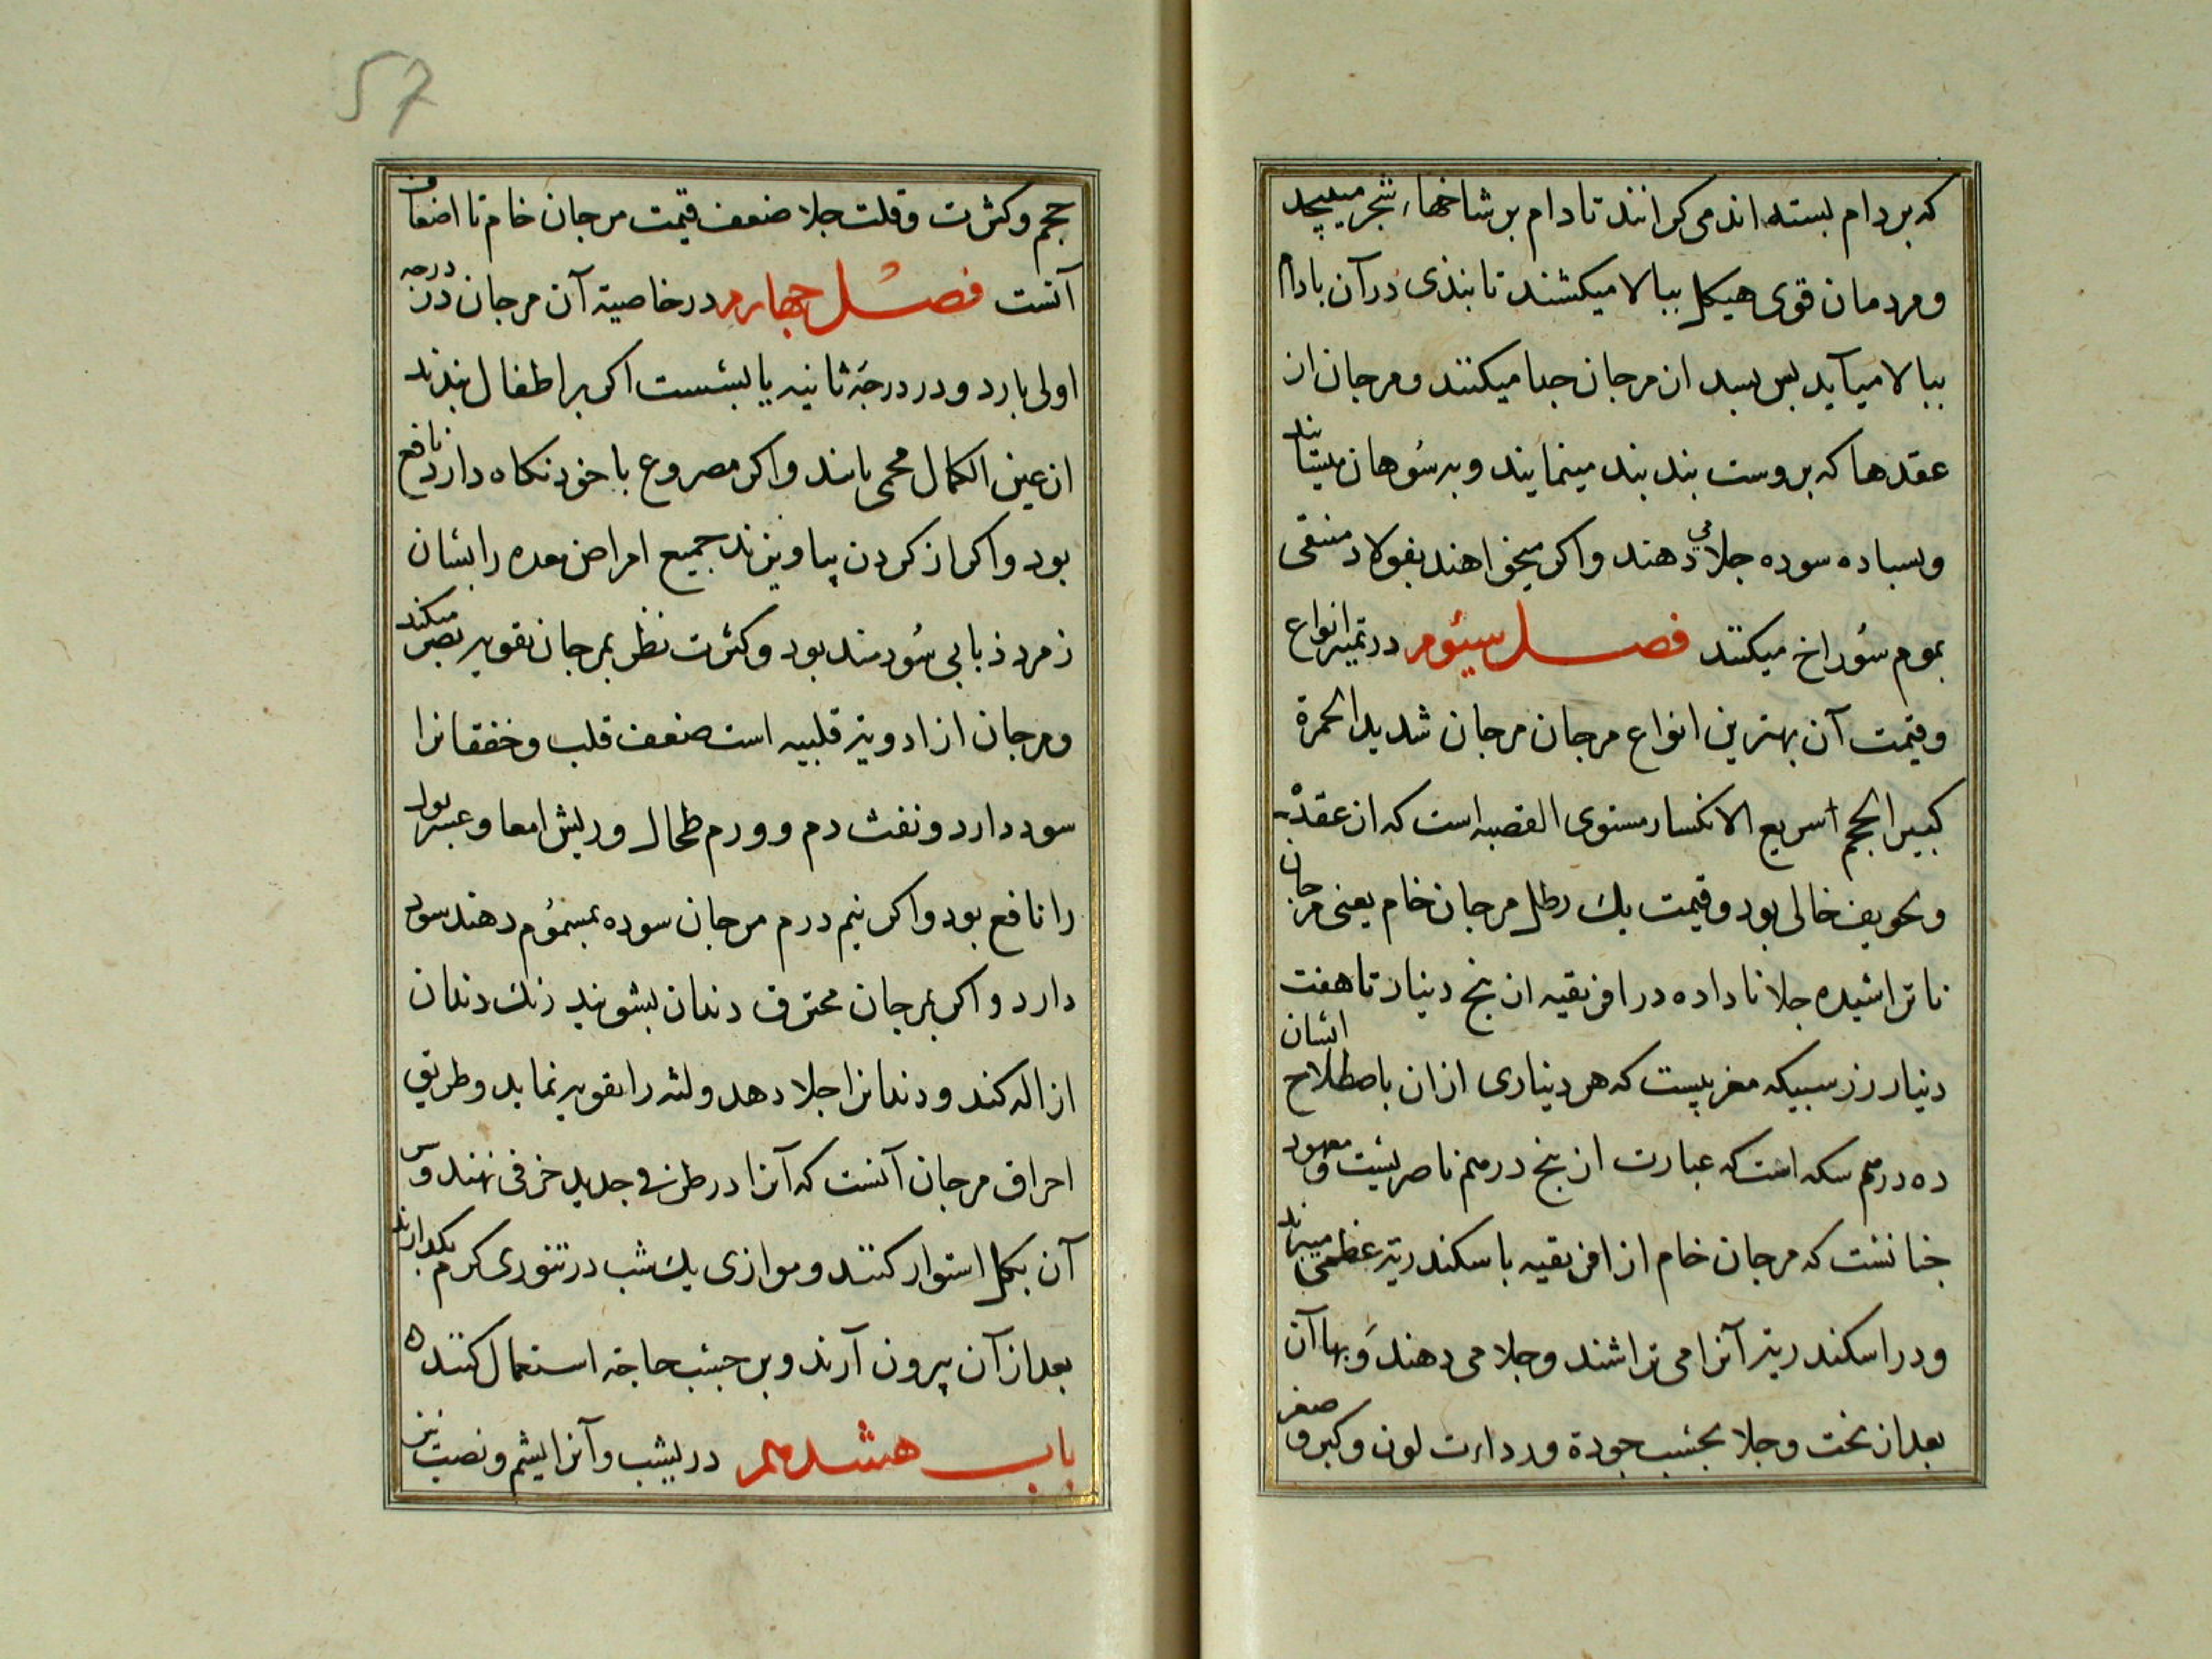 که بر دام بسته اند می کرانند تا دام بر شاخهاء شجر میپیچد
و مردمان قوی هیکل ببالا میکشند تا بنذی در آن بادام
ببالا میآید بس بسد از مرجان جدا میکنند و مرجان از
عقدها که بروست بند بند مینمایند و به سوهان میتابند
و بسباده سوده جلا می دهند و اکر میخواهند بفولاد منقی
بموم سوراخ میکنند فصل سیوم در تمیز انواع
و قیمت آن بهترین انواع مرجان مرجان شدید الحمرة
کبیر الحجم سریع الانکسار مستوی القصبه است که از عقده
و تحویف خالی بود و قیمت یک رطل مرجان خام یعنی مرجان
ناتراشیده جلا ناداده در افریقیه از بنج دینار تا هفت
دینار زر سبیکه مغربیست که هر دیناری از ان باصطلاح ایشان
ده درم سکه است که عبارت از بنج درم ناصریست و معهود
جنانست که مرجان خام از افریقیه باسکندریه عظمی میبرند
و در اسکندریه آنرا می تراشند و جلا می دهند و بهاآن
بعد از نحت و جلا بحسب جودة و رداءت لون و کبر و صغر
57
حجم و کثرت و قلت جلا ضعف قیمت مرجان خام تا اضعاف
آنست فصل جهارم در خاصیة آن مرجان در درجه
اولی بارد و در درجهٔ ثانیه یابسست اکر بر اطفال بندند
از عین الکمال محمی باشد و اکر مصروع با خود نکاه دارد نافع
بود و اکر از کردن بیاویزند جمیع امراض معده را بسان
زمرد ذبابی سودمند بود و کثرت نظر بمرجان تقویه بصر میکند
و مرجان از ادویهٔ قلبیه است ضعف قلب و خفقانرا
سود دارد و نفث دم و ورم طحال و ریش امعا و عسر بول
را نافع بود و اکر نیم درم مرجان سوده بمسموم دهند سود
دارد و اکر بمرجان محترق دندان بشویند زنک دندان
ازاله کند و دندانرا جلا دهد و لثه را تقویه نماید و طریق
احراق مرجان آنست که آنرا در ظرفی جدید خزفی نهند و سر
آن بکل استوار کنند و موازی یک شب در تنوری کرم بکدارند
بعد از آن بیرون آرند و بر حسب حاجة استعمال کنند ه
باب هشدهم در یشب و آنرا یشم و نصیب نیز